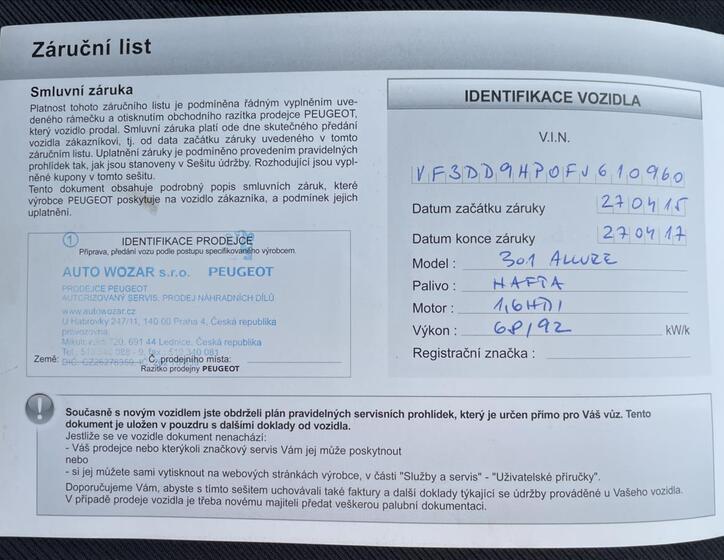 Záruční list
Smluvní záruka
Platnost tohoto záručního listu je podmíněna řádným vyplněním uve-
deného rámečku a otisknutím obchodního razítka prodejce PEUGEOT,
který vozidlo prodal. Smluvní záruka platí ode dne skutečného předání
vozidla zákazníkovi, tj. od data začátku záruky uvedeného v tomto
záručním listu. Uplatnění záruky je podmíněno provedením pravidelných
prohlídek tak, jak jsou stanoveny v Sešitu údržby. Rozhodující jsou vypl-
něné kupony v tomto sešitu.
Tento dokument obsahuje podrobný popis smluvních záruk, které
výrobce PEUGEOT poskytuje na vozidlo zákazníka, a podmínek jejich
uplatnění.
1 IDENTIFIKACE PRODEJCE
Příprava, předání vozu podle postupu specifikovaného výrobcem.
AUTO WOZAR s.r.o. PEUGEOT
PRODEJCE PEUGEOT
AUTORIZOVANÝ SERVIS, PRODEJ NÁHRADNÍCH DÍLŮ
www.autowozar.cz
U Habrovky 247/11, 140 00 Praha 4, Česká republika
provozovna:
691 44 Lednice, Česká republika
Země: Č. prodejního místa:
Razítko prodejny PEUGEOT
IDENTIFIKACE VOZIDLA
V.I.N.
VF3DD9HP0FJ610960
Datum začátku záruky 270415
Datum konce záruky 270417
Model : 301 ALLURE
Palivo : NAFTA
Motor : 1,6HDI
Výkon : 68/92 kW/k
Registrační značka :
! Současně s novým vozidlem jste obdrželi plán pravidelných servisních prohlídek, který je určen přímo pro Váš vůz. Tento
dokument je uložen v pouzdru s dalšími doklady od vozidla.
Jestliže se ve vozidle dokument nenachází:
- Váš prodejce nebo kterýkoli značkový servis Vám jej může poskytnout
nebo
- si jej můžete sami vytisknout na webových stránkách výrobce, v části "Služby a servis" - "Uživatelské příručky".
Doporučujeme Vám, abyste s tímto sešitem uchovávali také faktury a další doklady týkající se údržby prováděné u Vašeho vozidla.
V případě prodeje vozidla je třeba novému majiteli předat veškerou palubní dokumentaci.